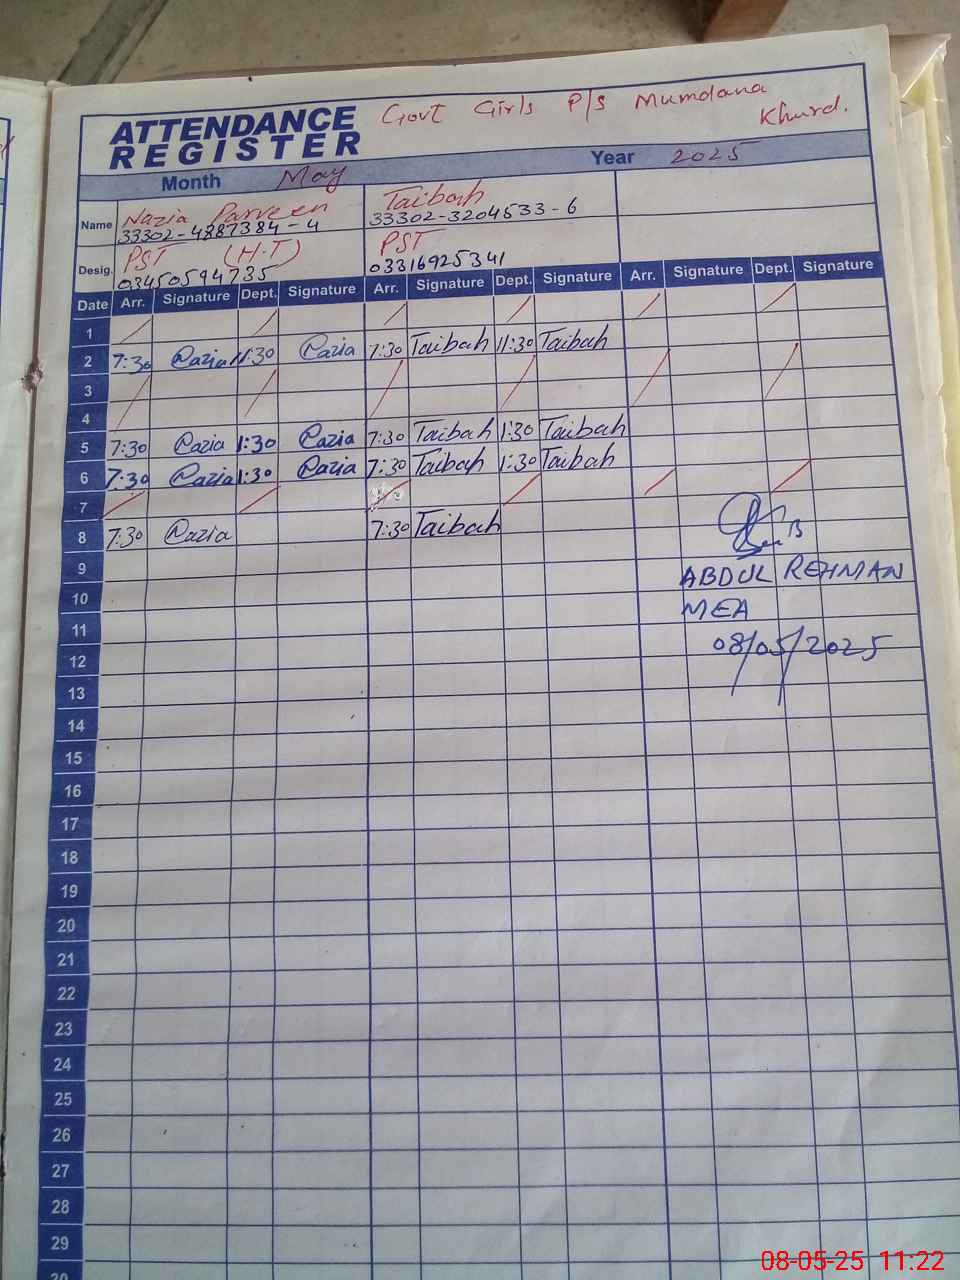 ATTENDANCE REGISTER Govt Girls P/S Mumdana Khurd.
Month May Year 2025
Name Nazia Parveen 33302-4887384-4 Taibah 33302-3204533-6
Desig. PST (H.T) 03450594735 PST 03316925341
Date Arr. Signature Dept. Signature Arr. Signature Dept. Signature Arr. Signature Dept. Signature
1
2 7:30 Nazia 11:30 Nazia 7:30 Taibah 11:30 Taibah
3
4
5 7:30 Nazia 1:30 Nazia 7:30 Taibah 1:30 Taibah
6 7:30 Nazia 1:30 Nazia 7:30 Taibah 1:30 Taibah
7
8 7:30 Nazia 7:30 Taibah
9 ABDUL REHMAN
10 MEA
11 08/05/2025
12
13
14
15
16
17
18
19
20
21
22
23
24
25
26
27
28
29
30
08-05-25 11:22